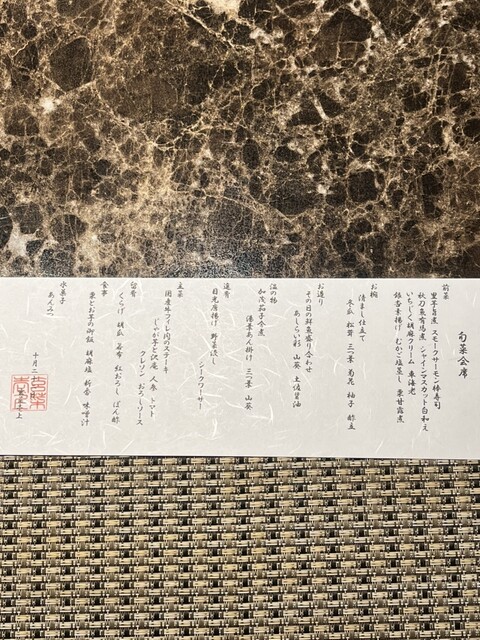 旬菜会席
前菜
里芋旨煮 スモークサーモン棒寿司
秋刀魚有馬煮 シャインマスカット白和え
いちじく胡麻クリーム 車海老
銀杏素揚げ むかご塩蒸し 栗甘露煮
お椀
清まし仕立て
冬瓜 松茸 三つ葉 菊花 柚子 酢立
お造り
その日の鮮魚盛り合わせ
あしらい彩 山葵 土佐醤油
温の物
加茂茄子含煮
湯葉あん掛け 三つ葉 山葵
進肴
目光唐揚げ 野菜浸し
シークワーサー
主菜
国産牛フィレ肉のステーキ
じゃが芋と沢庵 人参 トマト
クレソン おろしソース
留肴
くらげ 胡瓜 若布 紅おろし ぽん酢
食事
栗とお芋の御飯 胡麻塩 新香 味噌汁
水菓子
あんみつ
十月二
上